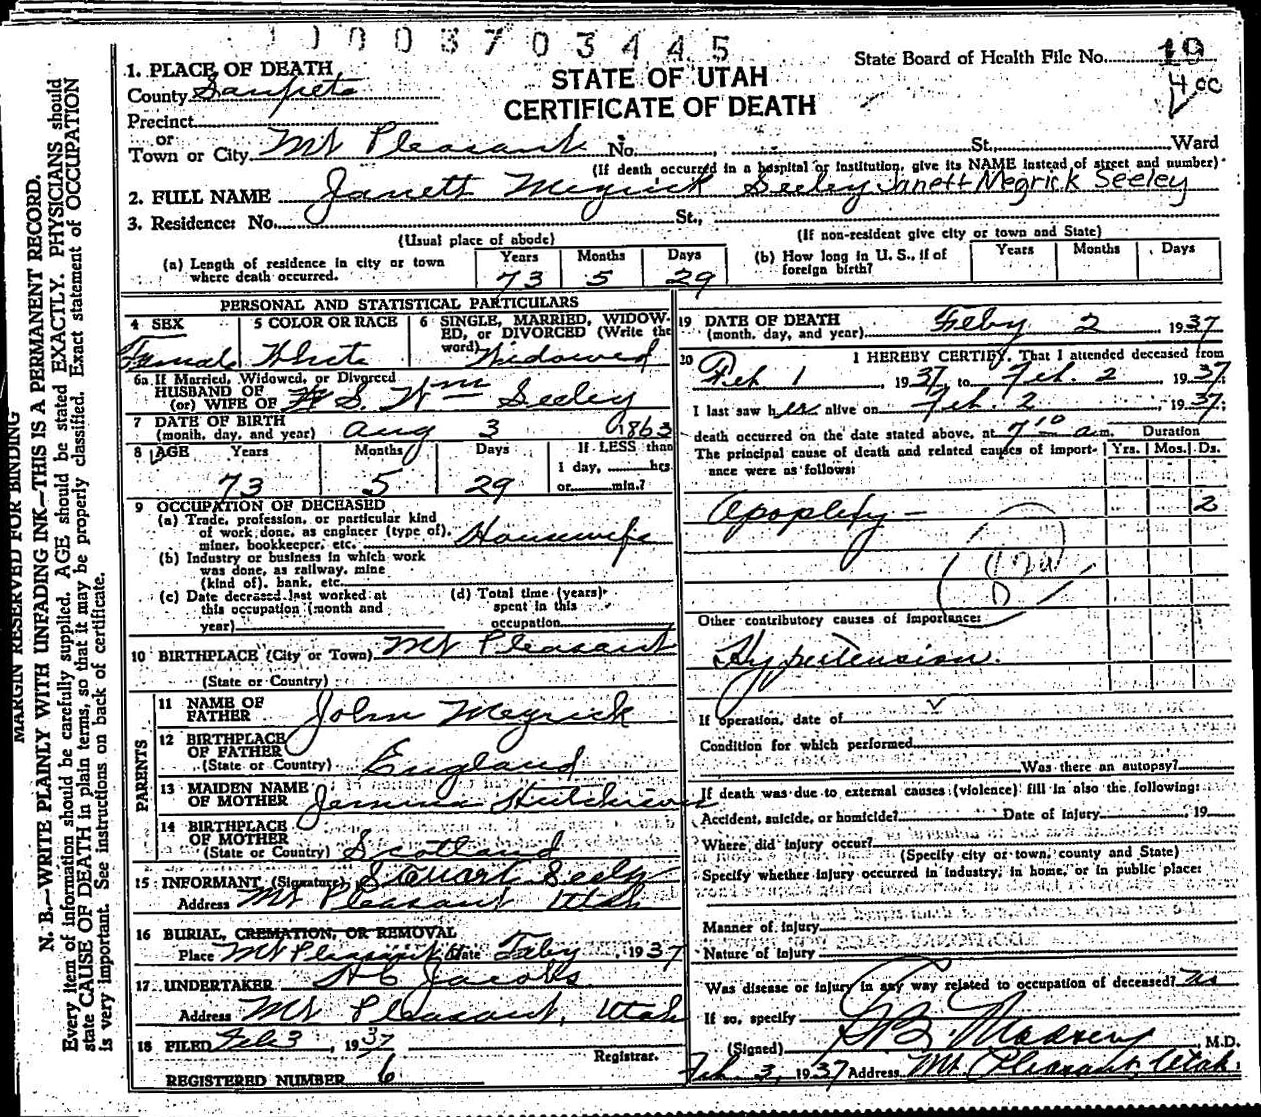 0003703445
State Board of Health File No. 19
400
STATE OF UTAH
CERTIFICATE OF DEATH
1. PLACE OF DEATH
County Sanpete
Precinct
or
Town or City Mt Pleasant No. St., Ward
(If death occurred in a hospital or institution, give its NAME instead of street and number)
2. FULL NAME Janett Meyrick Seeley Janett Megrick Seeley
3. Residence: No. St.,
(Usual place of abode) (If non-resident give city or town and State)
(a) Length of residence in city or town where death occurred. Years 73 Months 5 Days 29
(b) How long in U. S., if of foreign birth? Years Months Days
PERSONAL AND STATISTICAL PARTICULARS
4 SEX Female
5 COLOR OR RACE White
6 SINGLE, MARRIED, WIDOWED, or DIVORCED (Write the word) Widowed
6a If Married, Widowed, or Divorced
HUSBAND OF
(or) WIFE OF Wm Seeley
7 DATE OF BIRTH
(month, day, and year) Aug 3 1863
8 AGE Years 73 Months 5 Days 29 If LESS than
1 day, hrs
or min.?
9 OCCUPATION OF DECEASED
(a) Trade, profession, or particular kind
of work done, as engineer (type of),
miner, bookkeeper, etc. Housewife
(b) Industry or business in which work
was done, as railway, mine
(kind of), bank, etc.
(c) Date deceased last worked at
this occupation (month and
year)
(d) Total time (years)
spent in this
occupation
10 BIRTHPLACE (City or Town) Mt Pleasant
(State or Country)
PARENTS
11 NAME OF
FATHER John Meyrick
12 BIRTHPLACE
OF FATHER
(State or Country) England
13 MAIDEN NAME
OF MOTHER Jemima Hutchison
14 BIRTHPLACE
OF MOTHER
(State or Country) Scotland
15 INFORMANT (Signature) Stuart Seely
Address Mt Pleasant Utah
16 BURIAL, CREMATION, OR REMOVAL
Place Mt Pleasant Date Feby 1937
17 UNDERTAKER H C Jacobs
Address Mt Pleasant, Utah
18 FILED Feb 3, 1937
Registrar.
REGISTERED NUMBER 6
19 DATE OF DEATH
(month, day, and year) Feby 2 1937
20 I HEREBY CERTIFY, That I attended deceased from
Feb 1, 1937, to Feb. 2 1937;
I last saw her alive on Feb. 2, 1937;
death occurred on the date stated above, at 7 10 a.m. Duration
The principal cause of death and related causes of importance were as follows: Yrs. Mos. Ds.
Apoplexy - 2
82a
Other contributory causes of importance:
Hypertension.
If operation, date of
Condition for which performed
Was there an autopsy?
If death was due to external causes (violence) fill in also the following:
Accident, suicide, or homicide? Date of injury, 19
Where did injury occur?
(Specify city or town, county and State)
Specify whether injury occurred in industry, in home, or in public place:
Manner of injury
Nature of injury
Was disease or injury in any way related to occupation of deceased? No
If so, specify
(Signed) Madsen, M.D.
Feb 3, 1937 Address Mt Pleasant, Utah
MARGIN RESERVED FOR BINDING
N. B.—WRITE PLAINLY WITH UNFADING INK—THIS IS A PERMANENT RECORD.
Every item of information should be carefully supplied. AGE should be stated EXACTLY. PHYSICIANS should
state CAUSE OF DEATH in plain terms, so that it may be properly classified. Exact statement of OCCUPATION
is very important. See instructions on back of certificate.